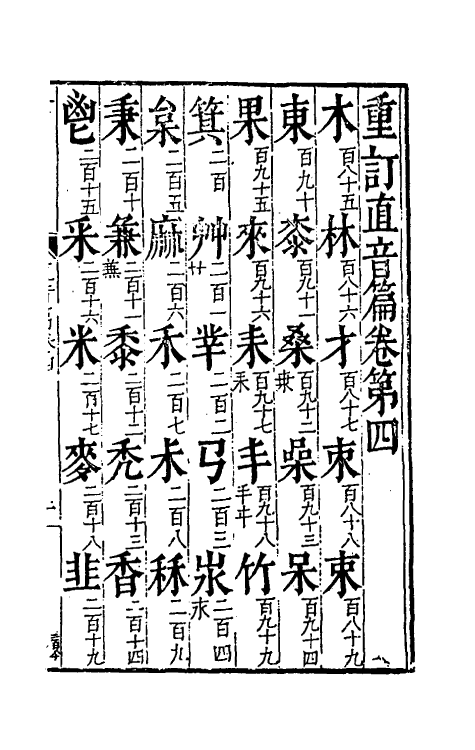 重訂直音篇卷第四
木百八十五 林百八十六 才百八十七 朿百八十八 束百八十九
東百九十 桼百九十一 桑百九十二 喿百九十三 呆百九十四
果百九十五 來百九十六 耒百九十七 丯百九十八 竹百九十九
箕二百 艸廾二百一 丵二百二 丂二百三 𣎵二百四
枲二百五 麻二百六 禾二百七 𥝌二百八 秝二百九
秉二百十 兼二百十一 黍二百十二 禿二百十三 香二百十四
鬯二百十五 釆二百十六 米二百十七 麥二百十八 韭二百十九